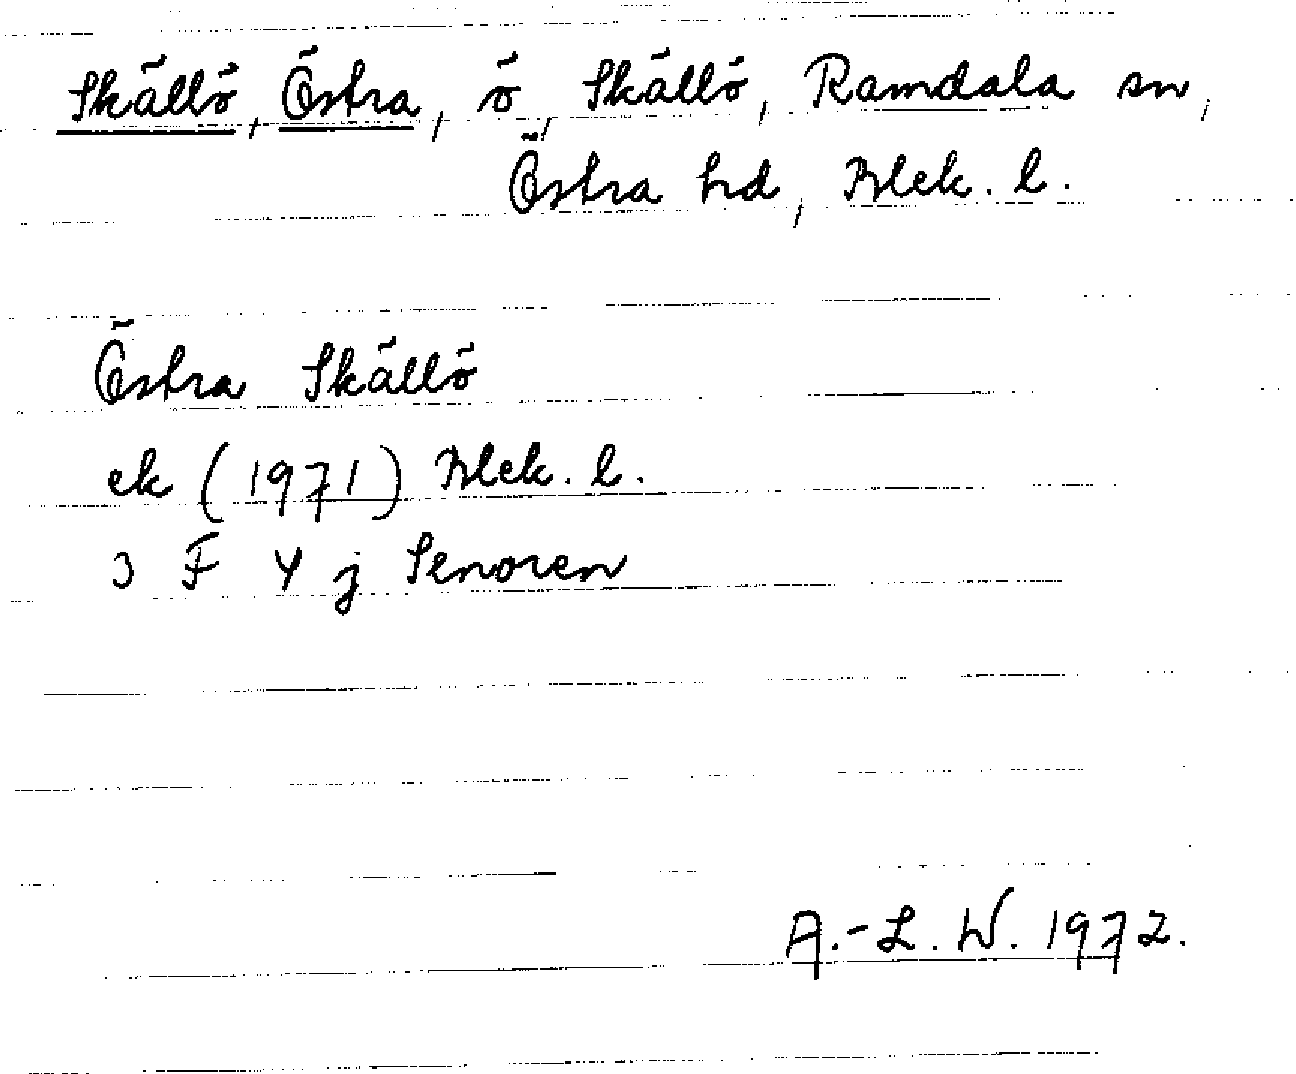 Skällö, Östra, ö Skällö, Ramdala sn,
Östra hd, Blek. l.
Östra Skällö
ek (1971) Blek. l.
3 F 4 j Senoren
A.-L. W. 1972.